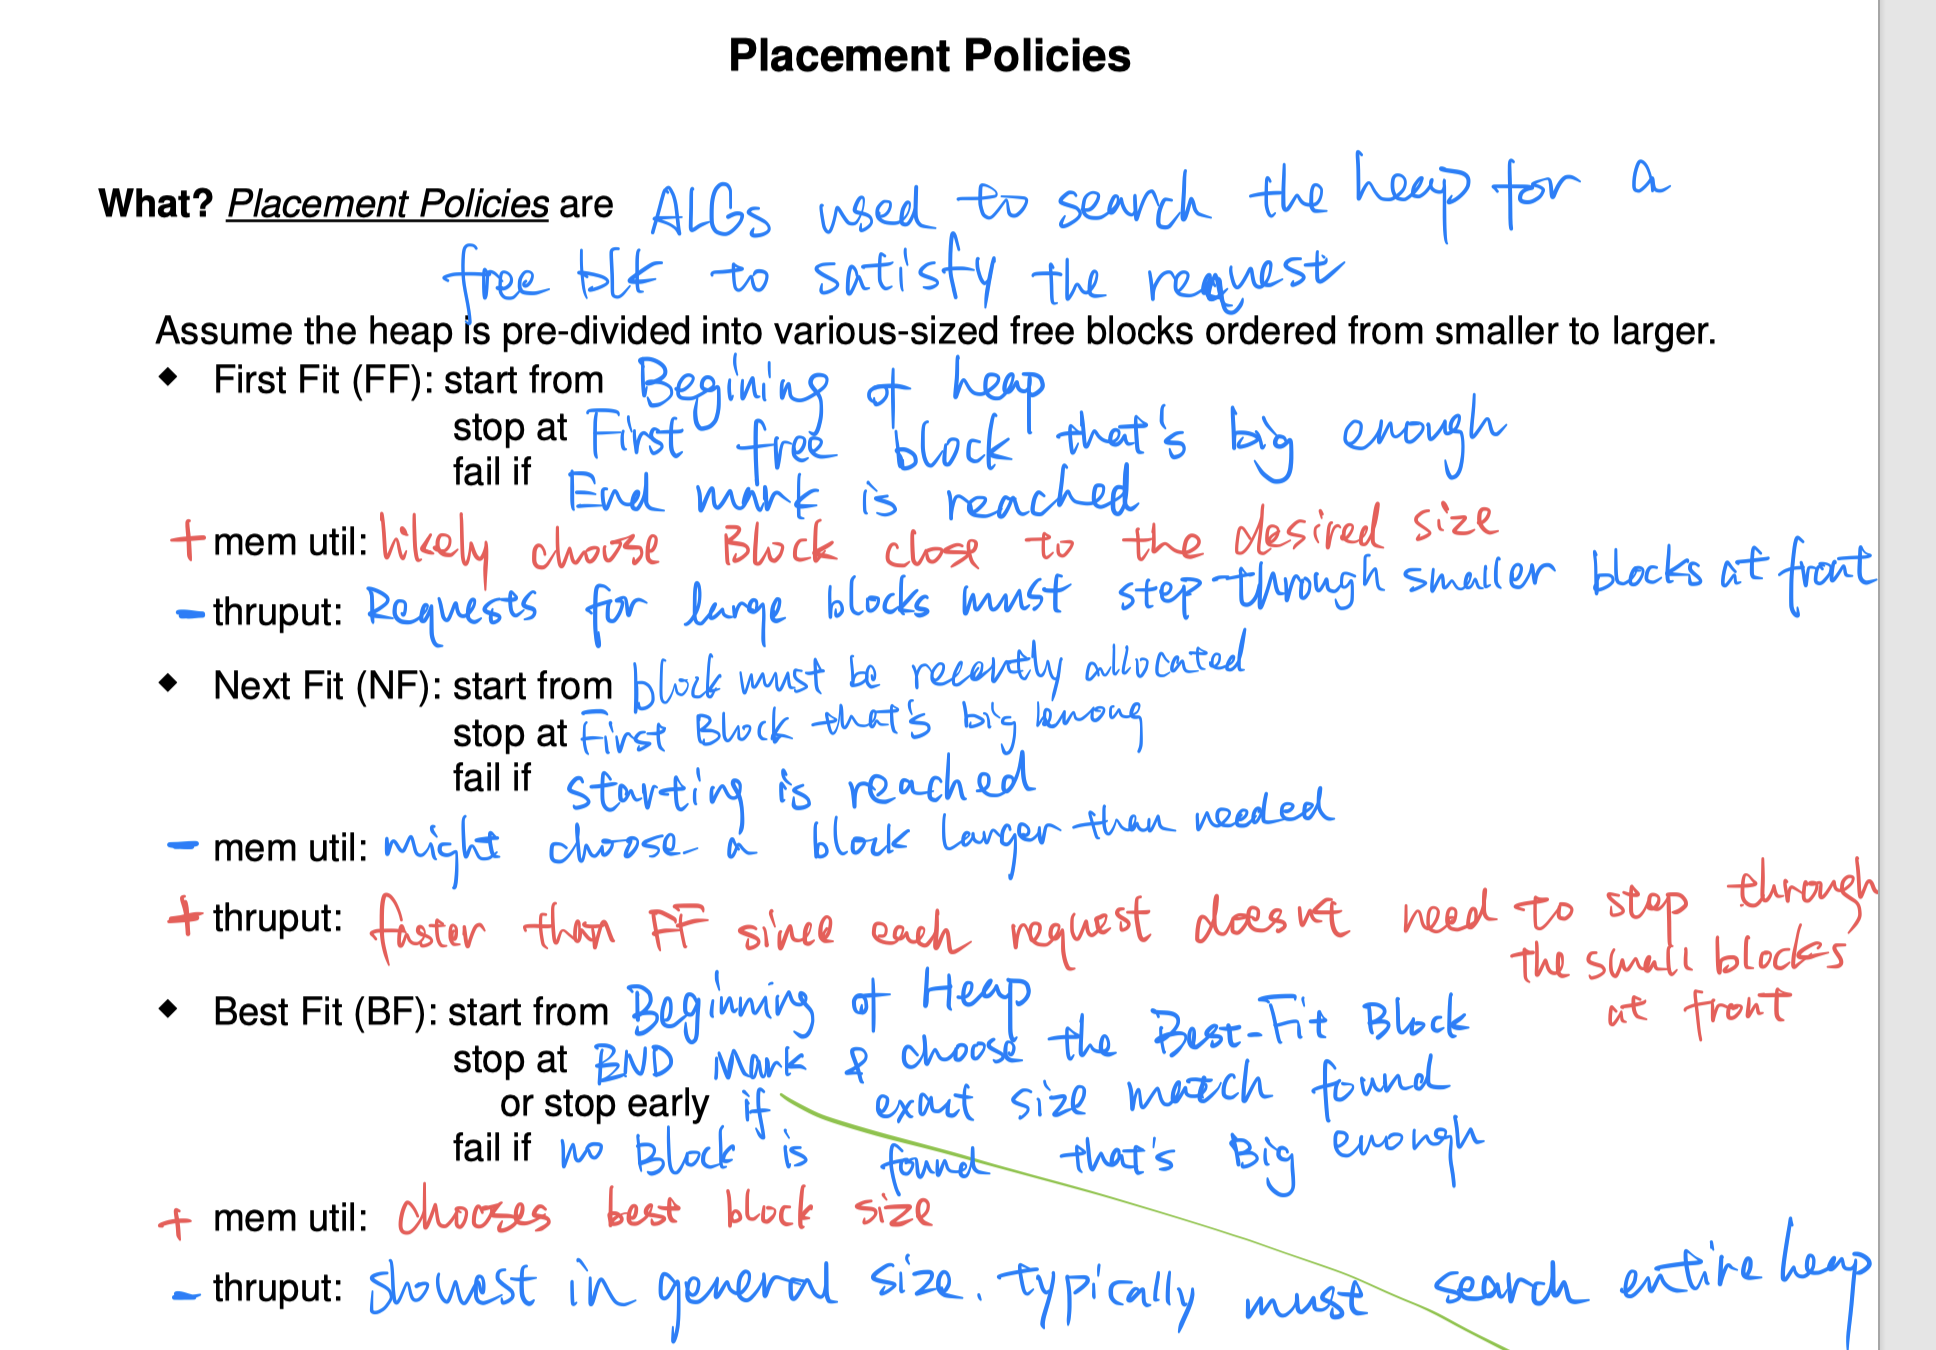 Placement Policies
What? Placement Policies are ALGs used to search the heap for a
free blk to satisfy the request
Assume the heap is pre-divided into various-sized free blocks ordered from smaller to larger.
◆ First Fit (FF): start from Begining of heap
stop at First free block that's big enough
fail if End mark is reached
+ mem util: likely choose Block close to the desired size
- thruput: Requests for large blocks must step through smaller blocks at front
◆ Next Fit (NF): start from block must be recently allocated
stop at First Block that's big
fail if starting is reached
- mem util: might choose a block larger than needed
+ thruput: faster than FF since each request doesn't need to step through
the small blocks
at front
◆ Best Fit (BF): start from Beginning of Heap
stop at END Mark & choose the Best-Fit Block
or stop early if exact size match found
fail if no Block is found that's Big enough
+ mem util: chooses best block size
- thruput: slowest in general size. typically must search entire heap